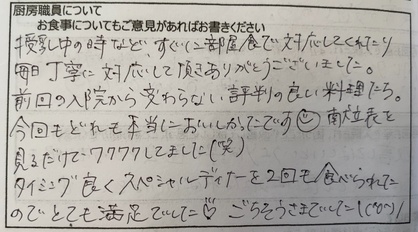 厨房職員について
お食事についてもご意見があればお書きください
授乳中の時など、すぐに部屋食で対応してくれたり
毎日丁寧に対応して頂きありがとうございました。
前回の入院から変わらない評判の良い料理たち。
今回もどれも本当においしかったです☺ 献立表を
見るだけでワクワクしてました(笑)
タイミング良くスペシャルディナーを2回も食べられた
のでとても満足でした♡ ごちそうさまでした!(^o^)/